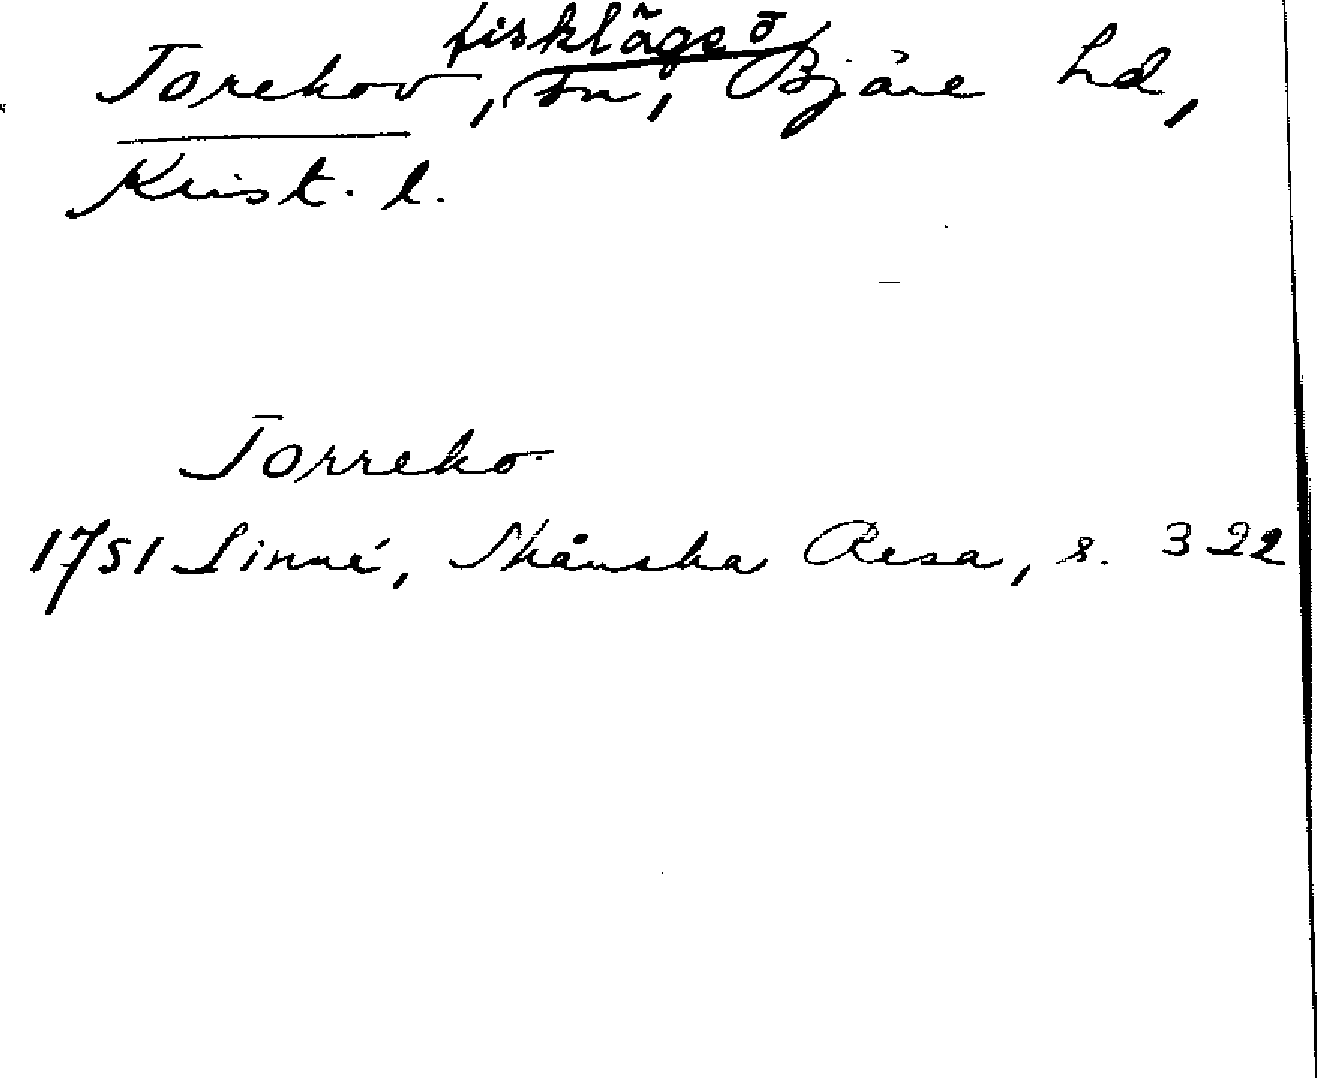 fiskläge
Torekov, sn, Bjäre hd,
Krist. l.
Torreko
1751 Linné, Skånska Resa, s. 322